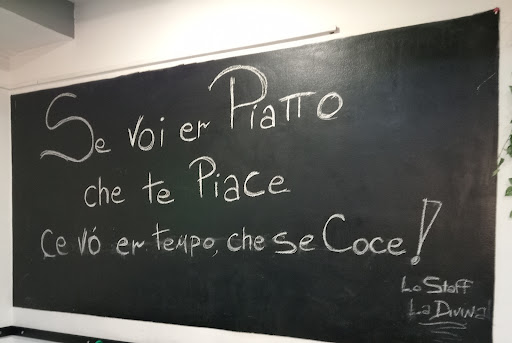 Se voi er Piatto
che te Piace
ce vó er tempo, che se Coce!
Lo Staff
La Divina